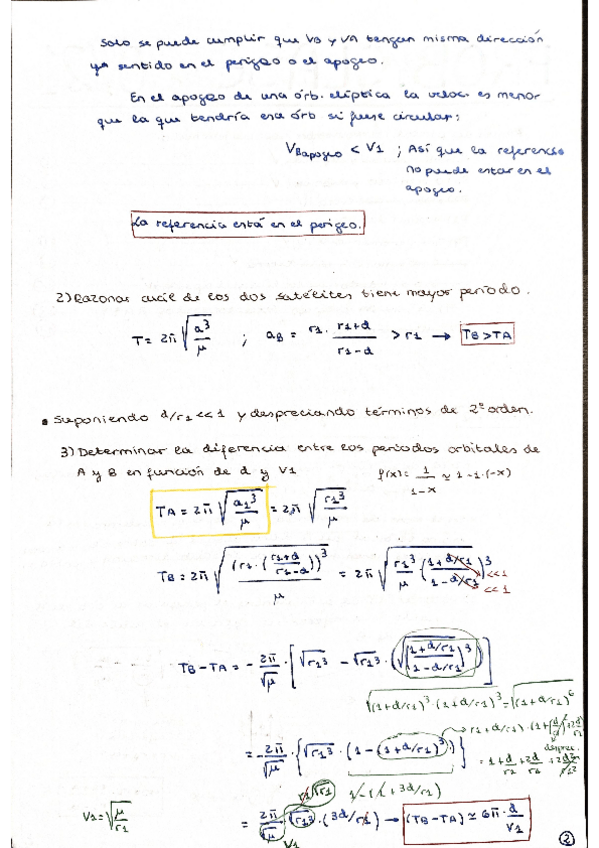 Solo se puede cumplir que VB y VA tengan misma dirección
y sentido en el perigeo o el apogeo.
En el apogeo de una órb. elíptica la veloc. es menor
que la que tendría esa órb si fuese circular:
VBapogeo < V1 ; Así que la referencia
no puede estar en el
apogeo.
La referencia está en el perigeo.
2) Razonar cuál de los dos satélites tiene mayor periodo.
T = 2π √(a³/μ) ; aB = r1 · (r1+d)/(r1-d) > r1 → TB > TA
• Suponiendo d/r1 << 1 y despreciando términos de 2º orden.
3) Determinar la diferencia entre los periodos orbitales de
A y B en función de d y V1
f(x) = 1/(1-x) ≃ 1-1·(-x)
TA = 2π √(a1³/μ) = 2π √(r1³/μ)
TB = 2π √((r1·((r1+d)/(r1-d)))³/μ) = 2π √(r1³/μ ((1+d/r1)/(1-d/r1))³) <<1
<<1
TB - TA = - 2π/√μ · [√r1³ - √r1³ · (√((1+d/r1)/(1-d/r1))³)]
√((1+d/r1)³·(1+d/r1)³) = √(1+d/r1)⁶
= - 2π/√μ · {√r1³ · (1-(1+d/r1)³)}
desprec.
1-(1+3d/r1)
r1√r1
V1 = √(μ/r1)
= 2π/√μ · √r1³ · (3d/r1) → (TB - TA) ≃ 6π · d/V1
V1
2